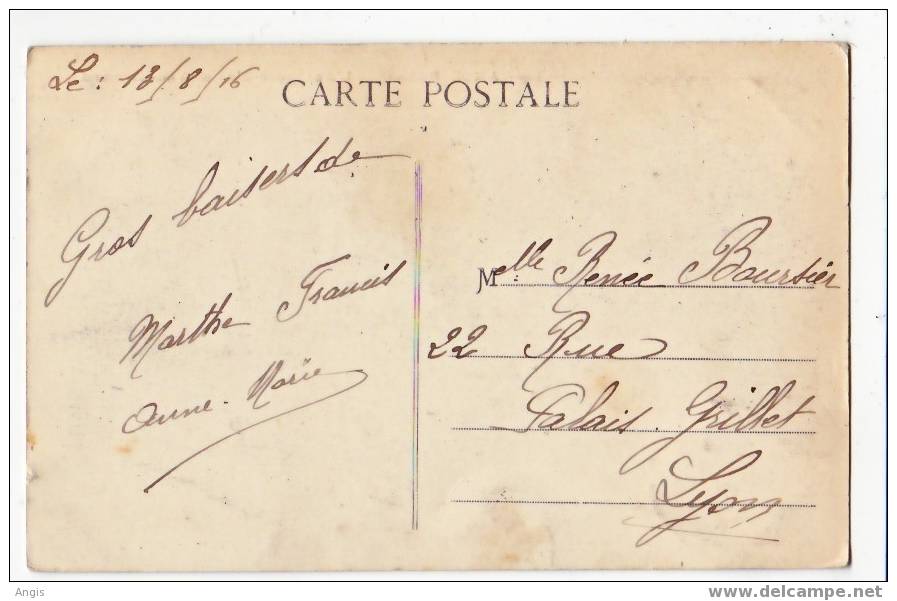 Le : 13/8/16
CARTE POSTALE
Gros baisers de
Marthe Francis
Anne-Marie
Melle Renée Boursier
22 Rue
Palais Grillet
Lyon
Angis
www.delcampe.net